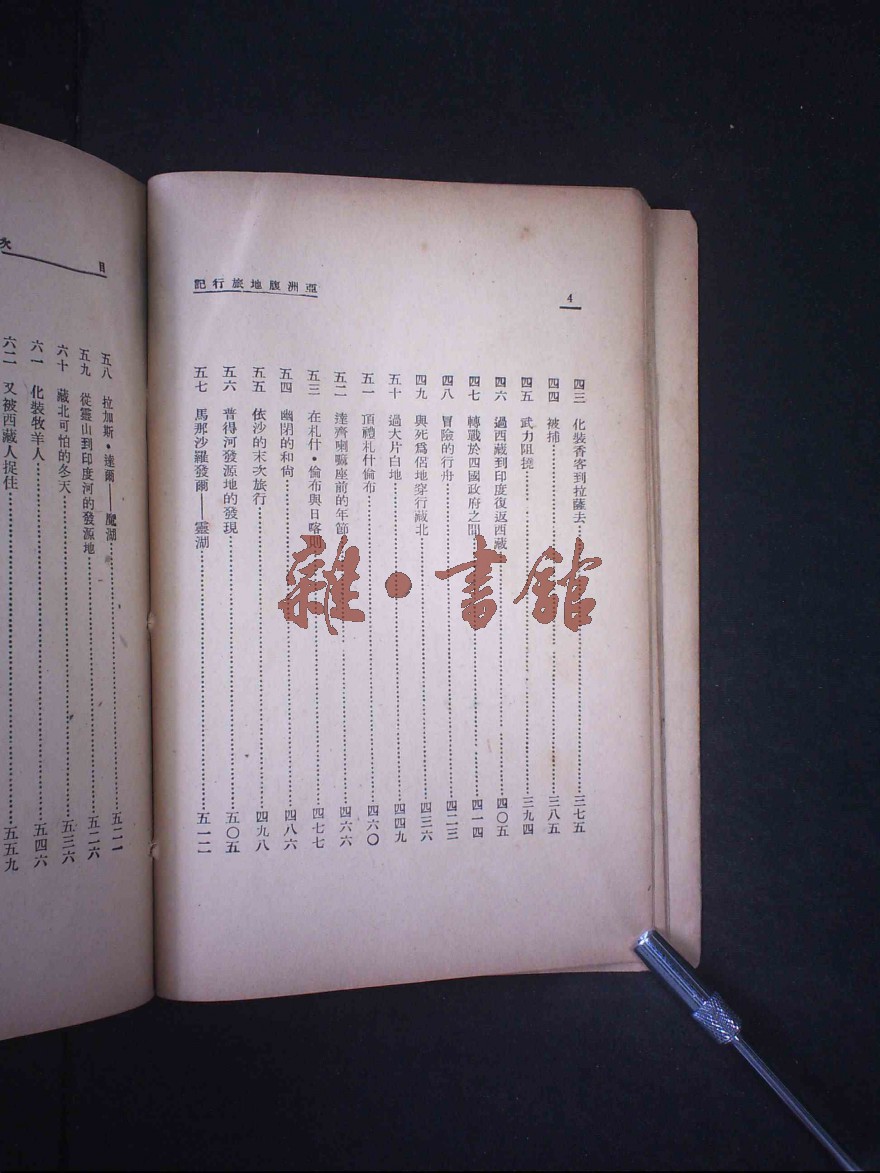 亞洲腹地旅行記
4
四三 化裝香客到拉薩去 三七五
四四 被捕 三八五
四五 武力阻撓 三九四
四六 過西藏到印度復返西藏 四〇五
四七 轉戰於四國政府之間 四一四
四八 冒險的行舟 四二三
四九 與死爲侶地穿行藏北 四三六
五十 過大片白地 四四九
五一 頂禮札什倫布 四六〇
五二 達齊喇嘛座前的年節 四六六
五三 在札什·倫布與日喀則 四七七
五四 幽閉的和尚 四八六
五五 依沙的末次旅行 四九八
五六 普得河發源地的發現 五〇五
五七 馬那沙羅發爾——靈湖 五一二
目次
五八 拉加斯·達爾——魔湖 五二一
五九 從靈山到印度河的發源地 五二六
六十 藏北可怕的冬天 五三六
六一 化裝牧羊人 五四六
六二 又被西藏人捉住 五五九
雜·書館